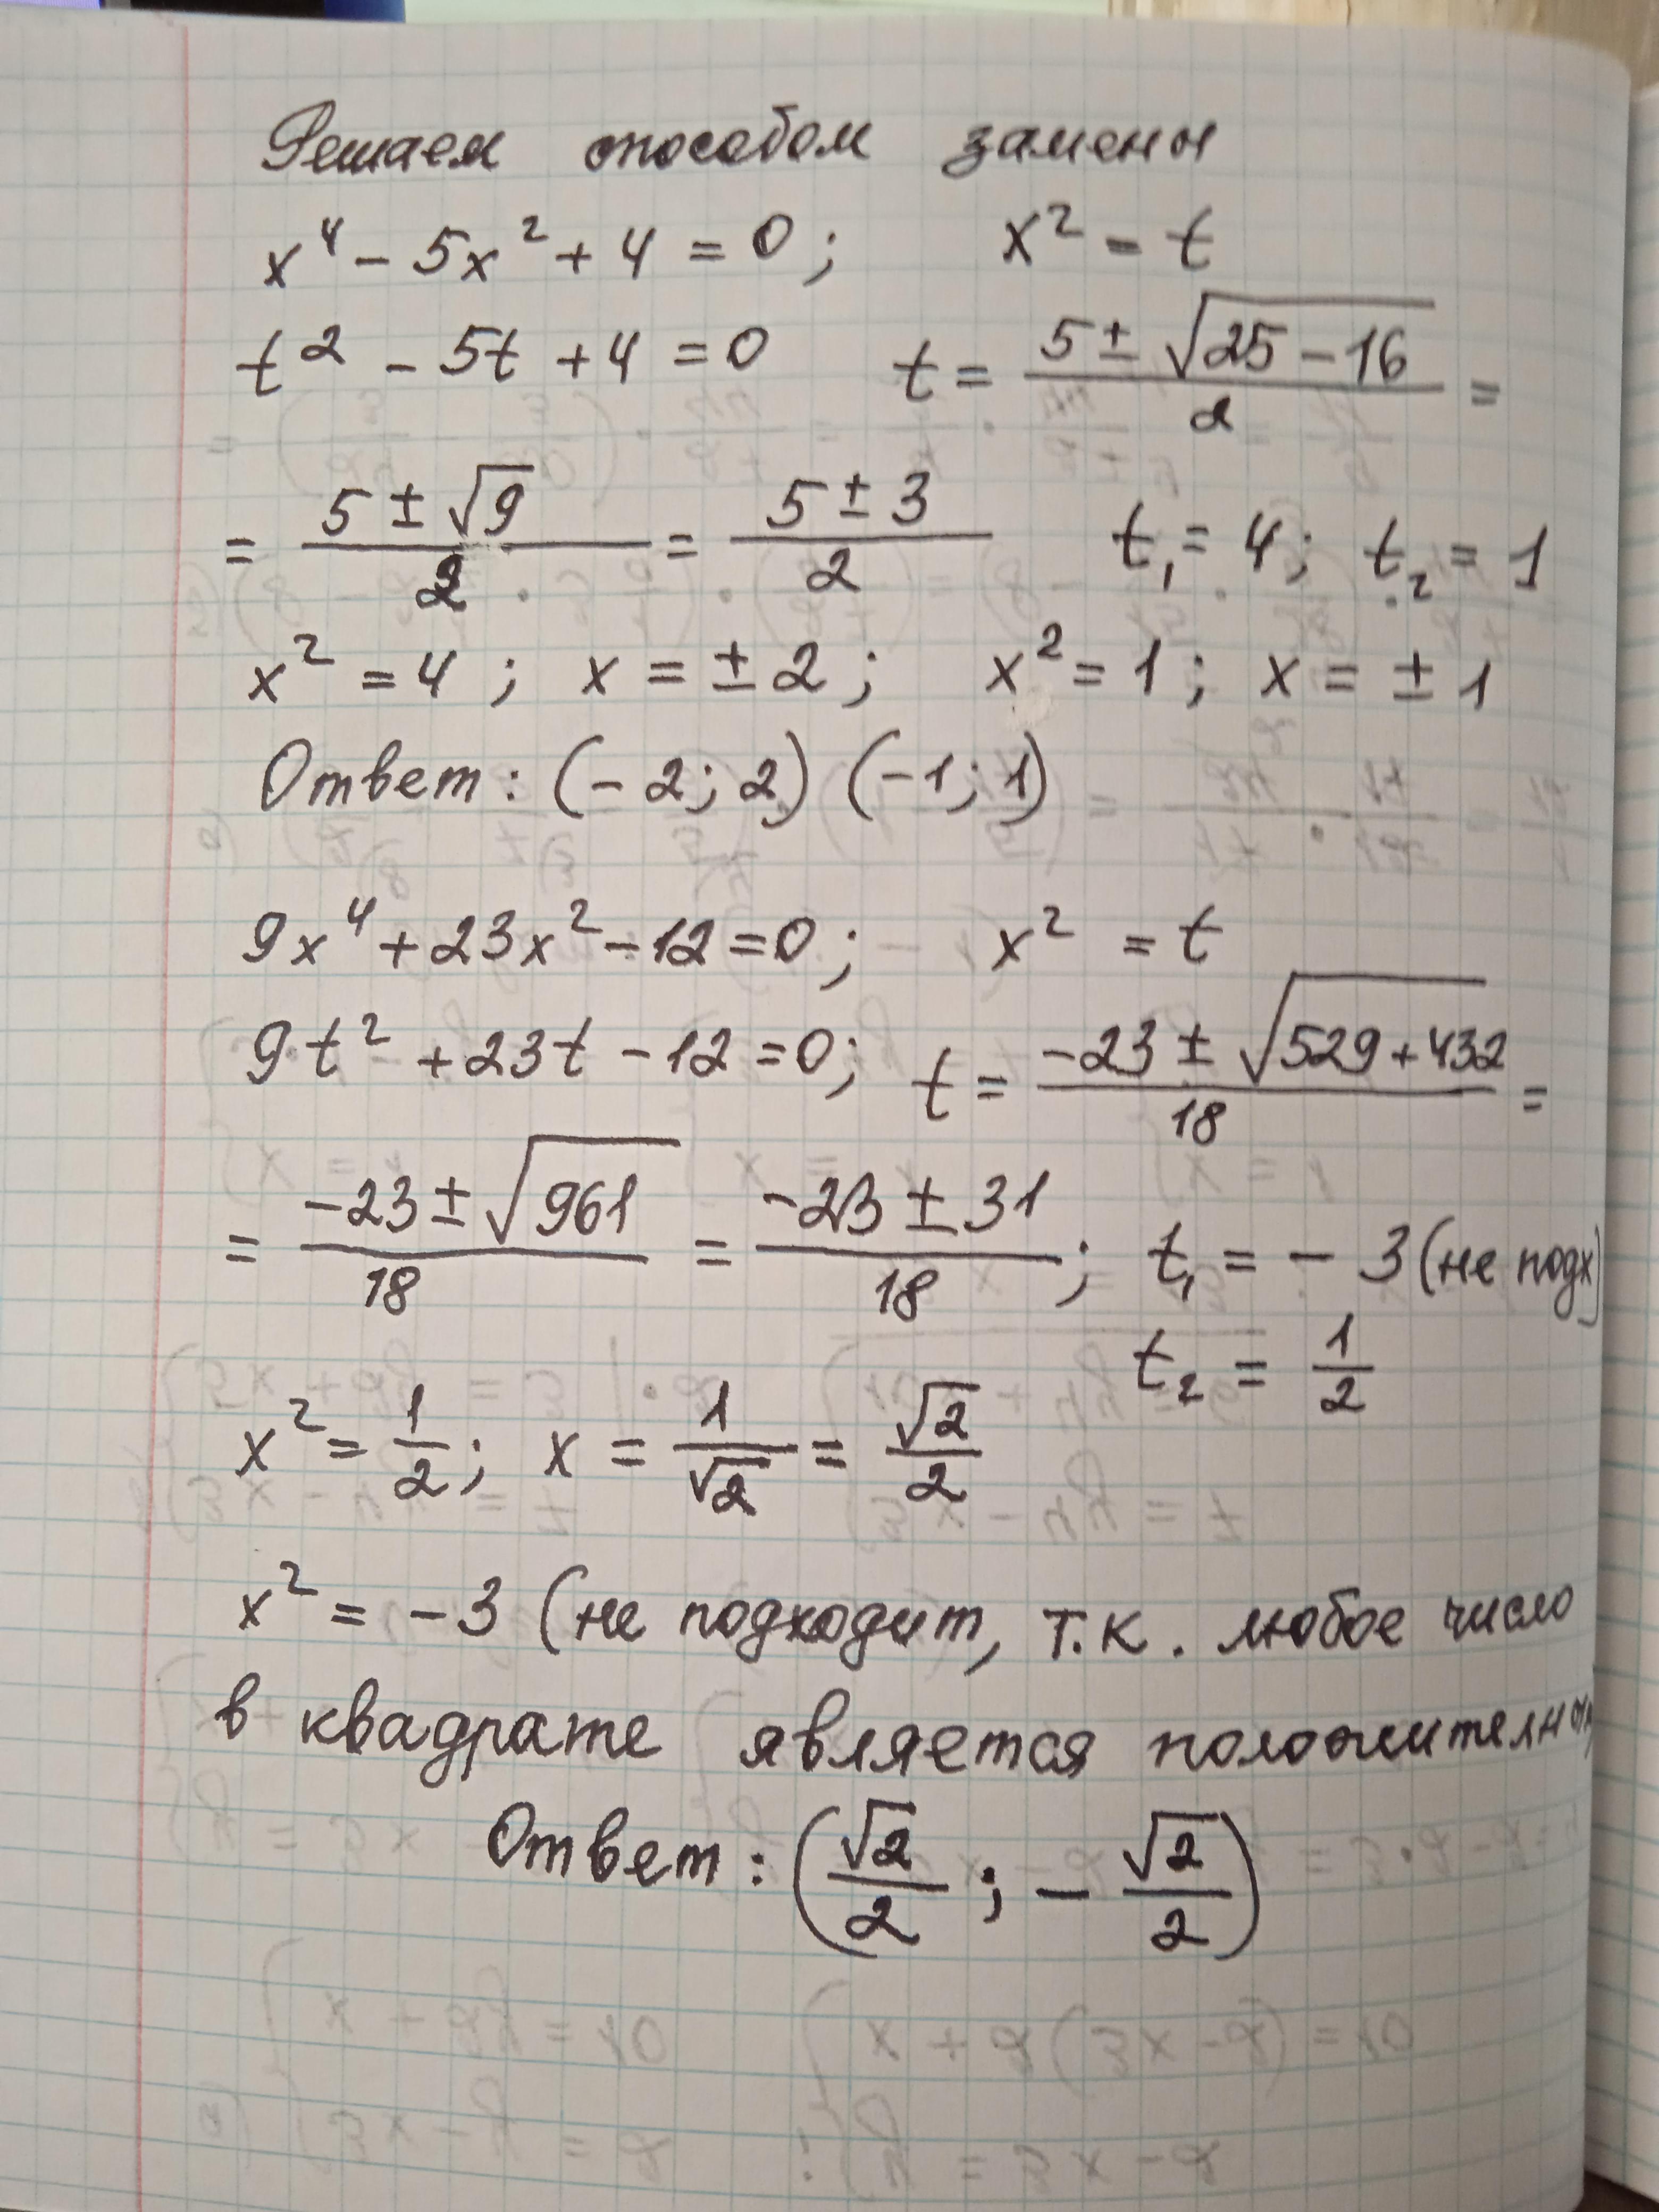 Решаем способом замены
x⁴ - 5x² + 4 = 0; x² = t
t² - 5t + 4 = 0 t = (5 ± √(25 - 16))/2 =
= (5 ± √9)/2 = (5 ± 3)/2 t₁ = 4; t₂ = 1
x² = 4; x = ± 2; x² = 1; x = ± 1
Ответ: (-2; 2) (-1; 1)
9x⁴ + 23x² - 12 = 0; x² = t
9t² + 23t - 12 = 0; t = (-23 ± √(529 + 432))/18 =
= (-23 ± √961)/18 = (-23 ± 31)/18; t₁ = - 3 (не подх)
t₂ = 1/2
x² = 1/2; x = 1/√2 = √2/2
x² = -3 (не подходит, т.к. любое число
в квадрате является положителным
Ответ: (√2/2; - √2/2)